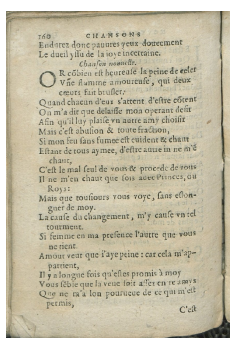 160 CHANSONS
Endurez donc pauures yeux doucement
Le dueil yssu de la ioye incertaine.
Chanson nouuelle.
OR cõbien est heureuse la peine de celer
Vne flamme amoureuse, qui deux
cœurs fait brusler:
Quand chacun d'eux s'attent d'estre cõtent
On m'a dit que delaisse mon operant desir
Afin qu'il luy plaise vn autre amy choisir
Mais c'est abusion & toute frasion,
Si mon feu sans fumee est euident & chaut
Estant de tous aymee, d'estre autre in ne m'é
chaut,
C'est le mal seul de vous & procede de vous
Il ne m'en chaut que sois auec Princes, ou
Roys:
Mais que tousiours vous voye, sans eslon-
gner de moy.
La cause du changement, m'y cause vn tel
tourment.
Si femme en ma presence l'autre que vous
ne tient
Amour veut que i'aye peine: car cela m'ap-
partient,
Il y a longue fois qu'estes promis à moy
Vous sẽble que la veue soit assez en te amys
Que ne t'a lon pourueue de ce qui m'est
permis,
C'est